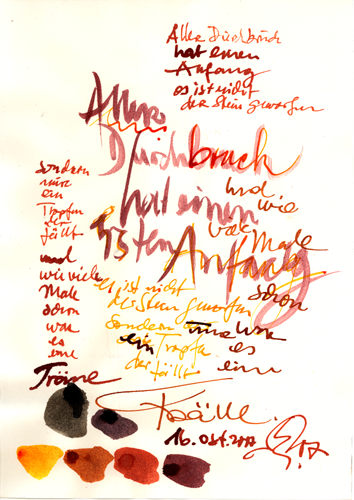 Aller Durchbruch
hat einen
Anfang
es ist nicht
der Stein geworfen
Aller
Durchbruch
hat einen
Anfang
sondern
nur
ein
Tropfen
der
fällt
und
wie viele
Male
schon
war
es
eine
Träne
und
wie
viele Male
schon
war
es
eine
es ist nicht
der Stein geworfen
sondern nur
ein Tropfen
der fällt
Träne.
16. Okt. 2017